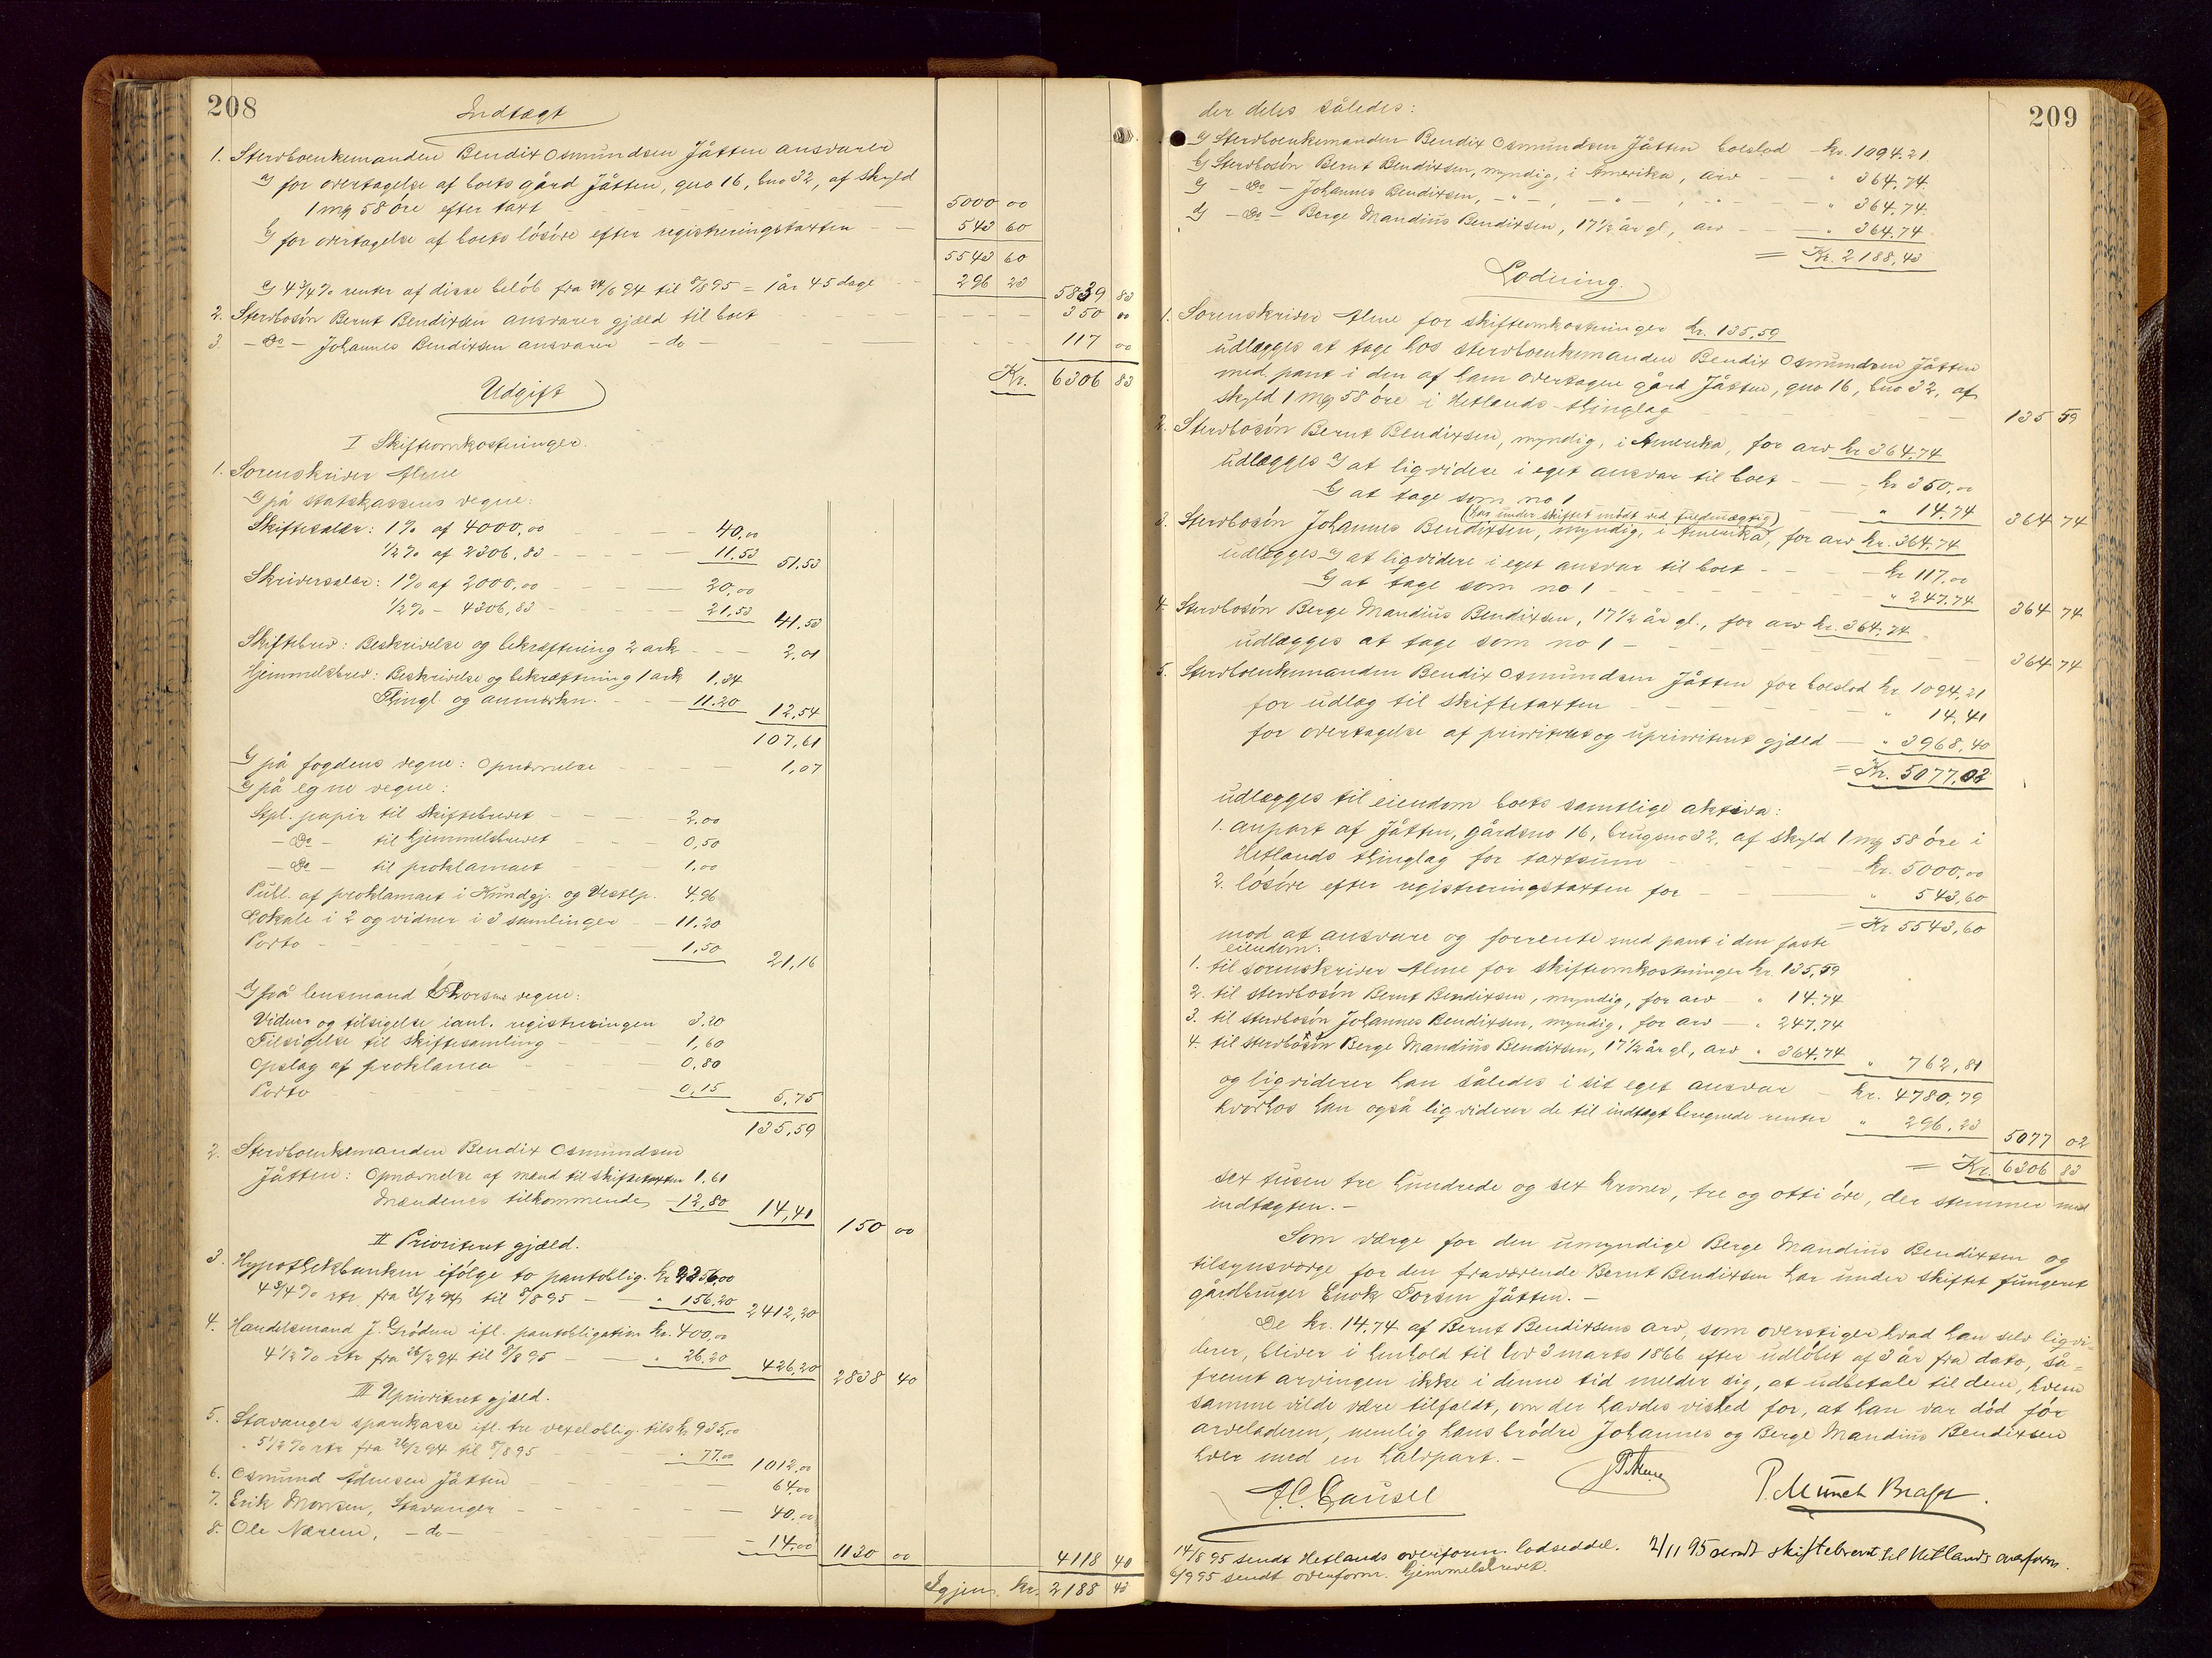 208
Indtægt
1. Stervboenkemanden Bendix Osmundsen Jåtten ansvarer
a) for overtagelse af boets gård Jåtten, gno 16, bno 32, af skyld
1 mg 58 øre efter taxt - - - 5000 00
b) for overtagelse af boets løsøre efter registreringstaxten - - 543 60
5543 60
c) 4 3/4 % renter af disse beløb fra 24/6 94 til 8/8 95 = 1 år 45 dage - - 296 23 5839 83
2. Stervbosøn Bernt Bendixsen ansvarer gjæld til boet - - - 350 00
3. - Do - Johannes Bendixsen ansvarer - do - - - 117 00
Kr. 6306 83
Udgift
I Skifteomkostninger.
1. Sorenskriver Alme
a) på statskassens vegne:
Skiftesalær: 1 % af 4000,00 - - - 40,00
1/2 % af 2306,83 - - - 11,53 51,53
Skriversalær: 1 % af 2000,00 - - - 20,00
1/2 % - 4306,83 - - - 21,53 41,53
Skiftebrev: Beskrivelse og bekræftning 2 ark - - - 2,01
Hjemmelsbrev: Beskrivelse og bekræftning 1 ark 1,34
Thingl. og anmærkn. - - - 11.20 12,54
107,61
b) på fogdens vegne: Opnævnelse - - - 1,07
c) på egne vegne:
Stpl. papir til skiftebrevet - - - 2.00
- Do - til hjemmelsbrevet - - - 0,50
- Do - til proklamaet - - - 1,00
Publ. af proklamaet i Kundgj. og Vestlp. 4,96
Lokale i 2 og vidner i 3 samlinger - - 11.20
Porto - - - 1,50 21,16
d) på lensmand Thorsens vegne:
Vidner og tilsigelse ianl. registreringen 3.20
Tilsigelse til skiftesamling - - - 1,60
Opslag af proklama - - - 0,80
Porto - - - 0,15 5,75
135,59
2. Stervboenkemanden Bendix Osmundsen
Jåtten: Opnævnelse af mænd til skiftetaxten 1,61
Mændenes tilkommende - 12,80 14,41 150 00
II Prioriteret gjæld.
3. Hypothekbanken ifølge to pantoblig. kr 2256,00
4 3/4 % rtr fra 26/2 94 til 8/8 95 - - " 156,20 2412,20
4. Handelsmand J. Grødem ifl. pantobligation kr. 400,00
4 1/2 % rtr fra 26/2 94 til 8/8 95 - - " 26,20 426,20 2838 40
III Uprioriteret gjæld.
5. Stavanger sparekasse ifl. tre vexeloblig. tils kr 935,00
" 5 1/2 % rtr fra 26/2 94 til 8/8 95 - " 77,00 1012,00
6. Osmund Ådnesen Jåtten - - - 64,00
7. Erik Monsen, Stavanger - - - 40,00
8. Ole Nærem, - do - - - - 14,00 1130 00 4118 40
Igjen kr. 2188 43
209
der deles således:
a) Stervboenkemanden Bendix Osmundsen Jåtten boeslod - kr. 1094.21
b) Stervbosøn Bernt Bendixsen, myndig, i Amerika, arv - - " 364,74
c) - Do - Johannes Bendixsen, - " - , - " - , " - - " 364.74
d) - Do - Berge Mandius Bendixsen, 17 1/2 år gl, arv - - " 364.74
= Kr. 2188,43
Lodning.
1. Sorenskriver Alme for skifteomkostninger kr. 135,59
udlægges at tage hos stervboenkemanden Bendix Osmundsen Jåtten
med pant i den af ham overtagne gård Jåtten, gno 16, bno 32, af
skyld 1 mg 58 øre i Hetlands thinglag - - - 135 59
2. Stervbosøn Bernt Bendixsen, myndig, i Amerika, for arv kr 364,74
udlægges a) at ligvidere i eget ansvar til boet - - kr 350,00
b) at tage som no 1 - - " 14.74 364 74
(har under skiftet mødt ved fuldmægtig)
3. Stervbosøn Johannes Bendixsen, myndig, i Amerika, for arv kr. 364,74
udlægges a) at ligvidere i eget ansvar til boet - - kr 117,00
b) at tage som no 1 - - " 247.74 364 74
4. Stervbosøn Berge Mandius Bendixsen, 17 1/2 år gl., for arv kr. 364,74
udlægges at tage som no 1 - - - 364 74
5. Stervboenkemanden Bendix Osmundsen Jåtten for boeslod kr. 1094,21
for udlæg til skiftetaxten - - - " 14,41
for overtagelse af prioriteret og uprioriteret gjæld - " 3968,40
= Kr. 5077,02
udlægges til eiendom boets samtlige aktiva:
1. anpart af Jåtten, gårdsno 16, brugsno 32, af skyld 1 mg 58 øre i
Hetlands thinglag for taxtsum - - - kr. 5000,00
2. løsøre efter registreringstaxten for - - - " 543,60
= Kr 5543,60
mod at ansvare og forrente med pant i den faste
eiendom:
1. til sorenskriver Alme for skifteomkostninger kr. 135,59
2. til stervbosøn Bernt Bendixsen, myndig, for arv - " 14.74
3. til stervbosøn Johannes Bendixsen, myndig, for arv - " 247.74
4. til stervbosøn Berge Mandius Bendixsen, 17 1/2 år gl, arv " 364,74 " 762,81
og ligviderer han således i sit eget ansvar - kr. 4780,79
hvorhos han også ligviderer de til indtægt beregnede renter " 296,23 5077 02
= Kr. 6306 83
sex tusen tre hundrede og sex kroner, tre og otti øre, der stemmer med
indtægten. -
Som værge for den umyndige Berge Mandius Bendixsen og
tilsynsværge for den fraværende Bernt Bendixsen har under skiftet fungeret
gårdbruger Enok Torsen Jåtten. -
De kr. 14.74 af Bernt Bendixsens arv, som overstiger hvad han selv ligvi-
derer, bliver i henhold til lov 3 marts 1866 efter udløbet af 3 år fra dato, så-
fremt arvingen ikke i denne tid melder sig, at udbetale til dem, hvem
samme vilde være tilfaldt, om der havdes vished for, at han var død før
arveladeren, nemlig hans brødre Johannes og Berge Mandius Bendixsen
hver med en halvpart. -
P Alme
A. C. Gausel
P. Münch Brager.
14/8 95 sendt Hetlands overform. lodseddel. 2/11 95 sendt skiftebrevet til Hetlands overform.
6/9 95 sendt overform. hjemmelsbrevet.